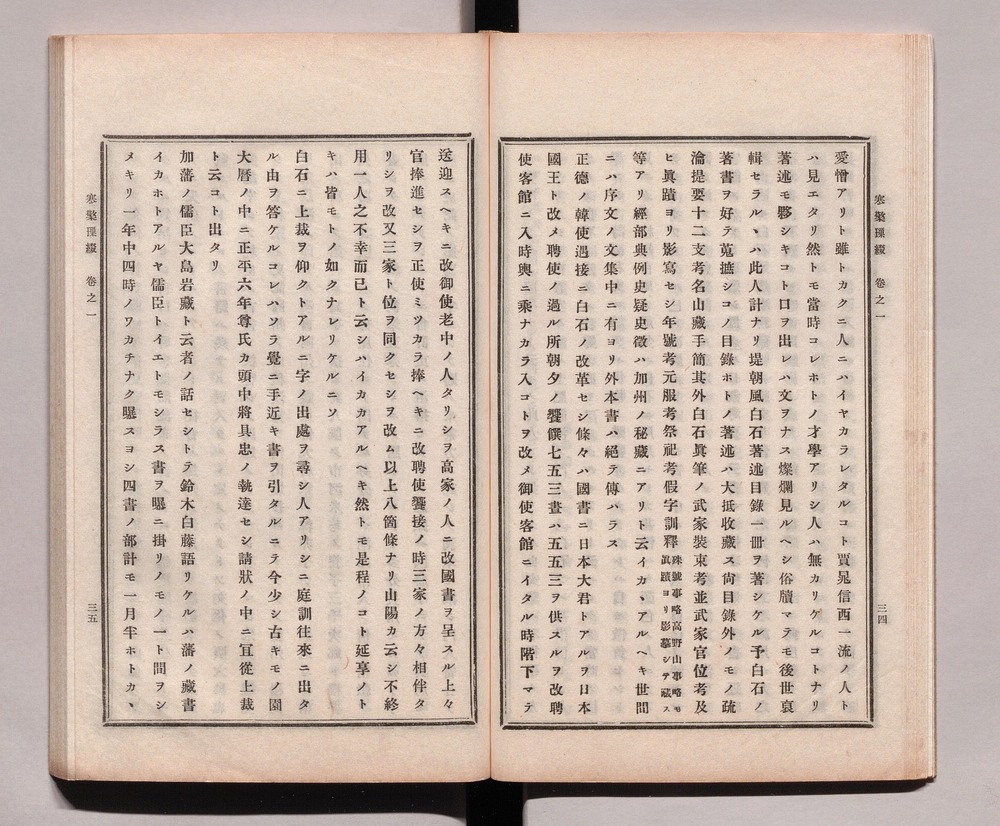 愛憎アリト雖トカクニ人ニハイヤカラレタルコト賈晁信西一流ノ人ト
ハ見エタリ然トモ當時コレホトノ才學アリシ人ハ無カリケルコトナリ
著述モ夥シキコト口ヲ出レハ文ヲナス燦爛見ルヘシ俗牘マテモ後世裒
輯セラルヽハ此人計ナリ堤朝風白石著述目錄一冊ヲ著シケル予白石ノ
著書ヲ好テ蒐摭シコノ目錄ホトノ著述ハ大抵收藏ス尙目錄外ノモノ疏
瀹提要十二支考名山藏手簡其外白石眞筆ノ武家裝束考並武家官位考及
ヒ眞蹟ヨリ影寫セシ年號考元服考祭祀考假字訓釋殊號事略高野山事略モ眞蹟ヨリ影摹シテ藏ス
等アリ經部典例史疑史徵ハ加州ノ秘藏ニアリト云イカヽアルヘキ世間
ニハ序文ノ文集中ニ有ヨリ外本書ハ絕テ傳ハラス
正德ノ韓使遇接ニ白石ノ改革セシ條々ハ國書ニ日本大君トアルヲ日本
國王ト改メ聘使ノ過ル所朝夕ノ饗饌七五三晝ハ五五三ヲ供スルヲ改聘
使客館ニ入時輿ニ乘ナカラ入コトヲ改メ御使客館ニイタル時階下マテ
寒檠璅綴 卷之一
三四
送迎スヘキニ改御使老中ノ人タリシヲ高家ノ人ニ改國書ヲ呈スル上々
官捧進セシヲ正使ミツカラ捧ヘキニ改聘使饗接ノ時三家ノ方々相伴タ
リシヲ改又三家ト位ヲ同クセシヲ改ム以上八箇條ナリ山陽カ云シ不終
用一人之不幸而已ト云シハイカカアルヘキ然トモ是程ノコト延享ノト
キハ皆モトノ如クナレリケルニソ
白石ニ上裁ヲ仰クトアルニ字ノ出處ヲ尋シ人アリシニ庭訓往來ニ出タ
ル由ヲ答ケルコレハソラ覺ニ手近キ書ヲ引タルニテ今少シ古キモノ園
大曆ノ中ニ正平六年尊氏カ頭中將具忠ノ執達セシ請狀ノ中ニ冝從上裁
ト云コト出タリ
加藩ノ儒臣大島岩藏ト云者ノ話セシトテ鈴木白藤語リケルハ藩ノ藏書
イカホトアルヤ儒臣トイエトモシラス書ヲ曝ニ掛リノモノ一ト間ヲシ
メキリ一年中四時ノワカチナク曝スヨシ四書ノ部計モ一月半ホトカヽ
寒檠璅綴 卷之一
三五